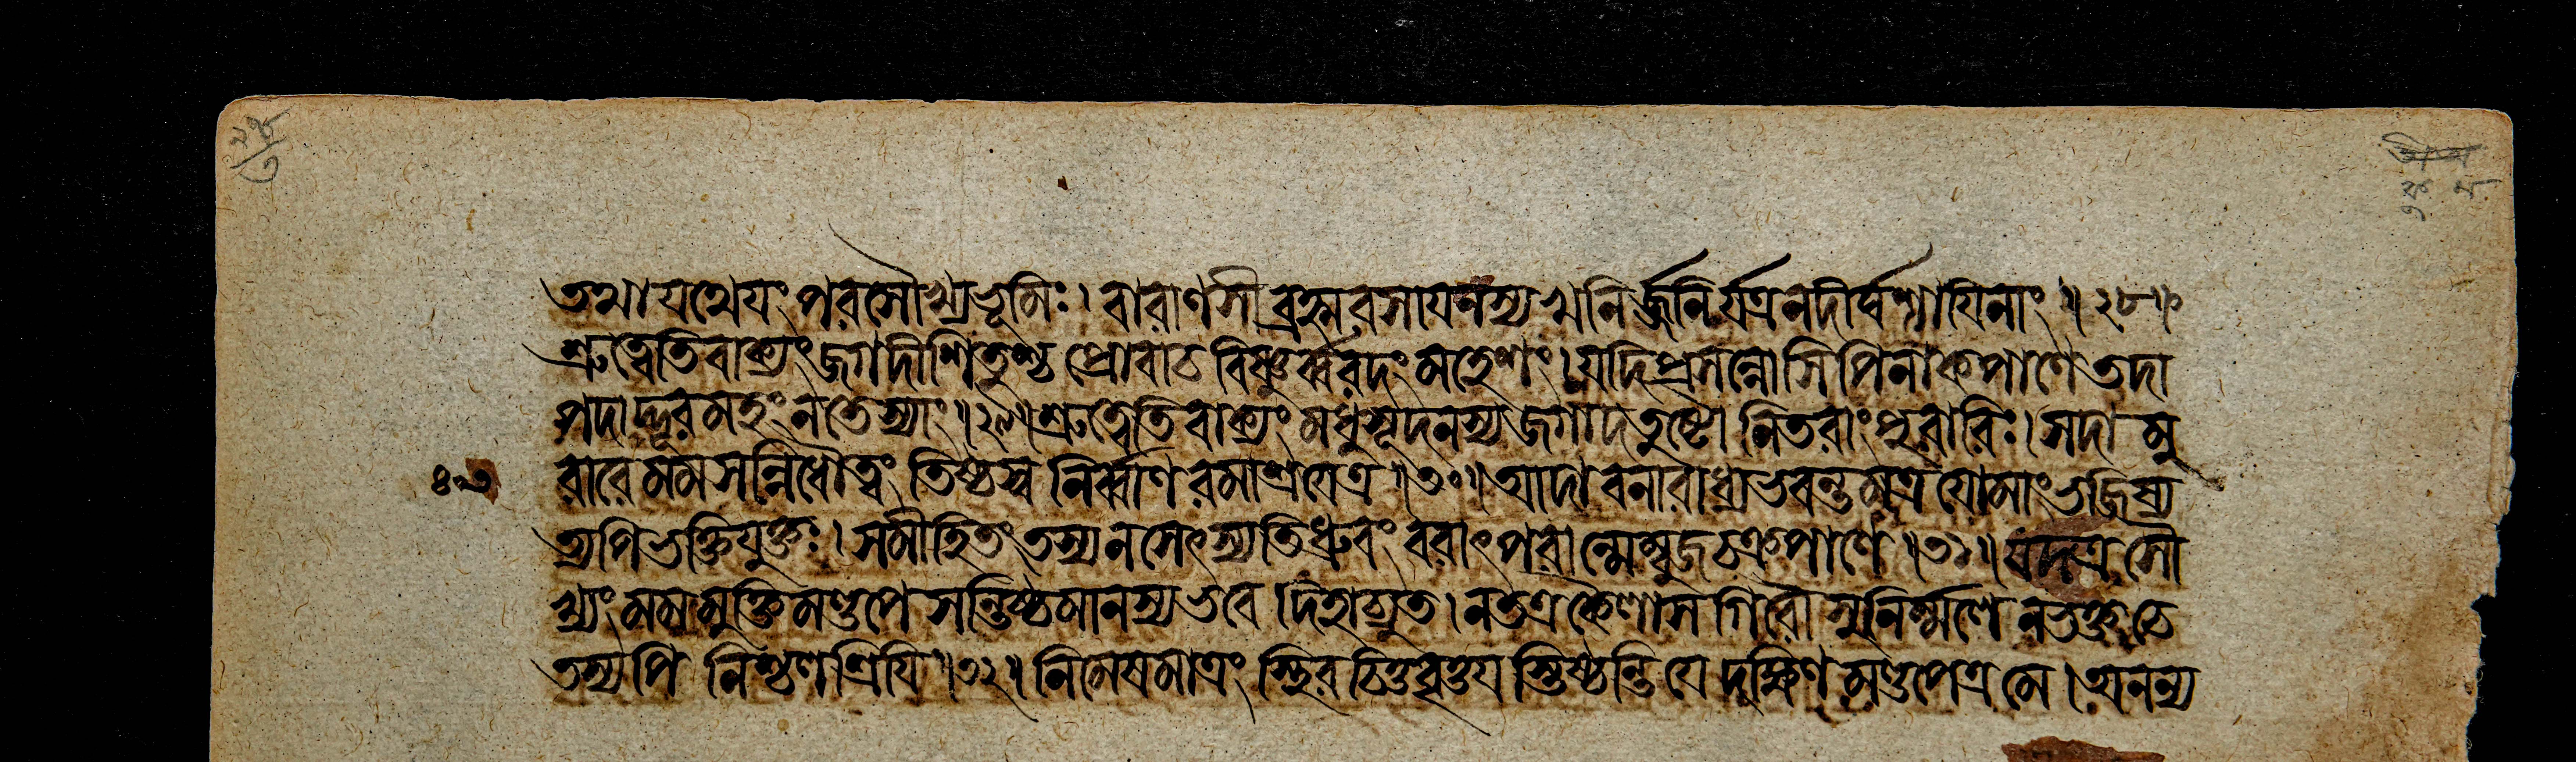 তথা যথেযং পরসৌখ্যভূমিঃ। বারাণসী ব্রহ্মরসাযনস্য খনির্জ্জনির্যত্র ন দীর্ঘশাযিনাং॥২৮॥
শ্রুত্বেতি বাক্যং জগদীশিতুশ্চ প্রোবাচ বিষ্ণুর্ব্বরদং মহেশং। যদি প্রসন্নোসি পিনাকপাণে তদা
পদাদ্দূরমহং ন তে স্যাং॥২৯॥ শ্রুত্বেতি বাক্যং মধুসূদনস্য জগাদ তুষ্টো নিতরাং পুরারিঃ। সদা মু
রারে মম সন্নিধৌ ত্বং তিষ্ঠস্ব নির্ব্বাণরমাশ্রযেত্র॥৩০॥ আদাবনারাধ্য ভবন্তমত্র যো মাং ভজিষ্য
ত্যপি ভক্তিযুক্তঃ। সমীহিতং তস্য ন সেৎস্যতি ধ্রুবং পরাৎপরান্মেম্বুজচক্রপাণে॥৩১॥ যদত্র সৌ
খ্যং মম মুক্তিমণ্ডপে সন্তিষ্ঠমানস্য ভবেদিহাচ্যুত। ন তত্র কৈলাসগিরৌ সুনির্ম্মলে ন ভক্তচে
তস্যপি নিশ্চলশ্রিযি॥৩২॥ নিমেষমাত্রং স্থিরচিত্তবৃত্তযস্তিষ্ঠন্তি যে দক্ষিণমণ্ডপেত্র মে। অনন্য